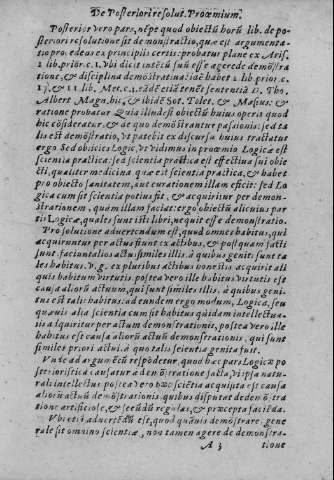 De Posteriori resolut. Proœmium.
Posterior vero pars, nẽpe quod obiectũ horũ lib. de po-
steriori resolutione sit demonstratio, quæ est argumenta-
tio procedens ex principiis certis: probatur plane ex Aris.
1 lib. prior. c. 1. vbi dicit intẽtũ suũ esse agere de demõstra
tione, & disciplina demõstratiua: idẽ habet 1 lib. prior c.
& 11 lib. Met. c. 1. eadẽ etiã tenẽt sententiã D. Tho.
Albert Magn. hic, & ibidẽ Sot. Tolet. & Masius: &
ratione probatur Quia illud est obiectũ huius operis quod
hic cõsideratur, & de quo demõstrantur passiones: sed ta
lis est demõstratio, vt patebit ex discursu huius tractatus
ergo Sed obiicies Logic. vt vidimus in proœmio Logicæ est
scientia practica: sed scientia practica est effectiua sui obie
cti, qualiter medicina quæ est scientia practica, & habet
pro obiecto sanitatem, aut curationem illam efficit: sed Lo
gica cum sit scientia potius fit, & acquiritur per demon-
strationem, quàm illam faciat: ergo obiectũ alicuius par
tis Logicæ, quales sunt isti libri, nequit esse demonstratio.
Pro solutione aduertendum est, quod omnes habitus, qui
acquiruntur per actus fiunt ex actibus, & postquam facti
sunt faciunt alios actus similes illis, à quibus geniti sunt ta
les habitus. v. g. ex pluribus actibus honestis acquirit ali
quis habitum virtutis. postea vero ille habitus virtutis est
causa aliorũ actuum, qui sunt similes illis, à quibus geni-
tus est talis habitus: ad eundem ergo modum, Logica, seu
quæuis alia scientia cum sit habitus quidam intellectua-
lis acquiritur per actum demonstrationis, postea vero ille
habitus est causa aliorũ actuũ demonstrationis, qui sunt
similes priori actui, à quo talis scientia genita fuit.
Vnde ad argumẽtũ respõdetur, quod hæc pars Logicæ po
sterioristica causatur à demõstratione facta, vi ipsa natu-
rali intellectus postea vero hæc sciẽtia acquisita est causa
aliorũ actuũ demõstrationis. quibus disputat de demõstra
tione artificiose, & secũdũ regulas, & præcepta faciẽda.
Vbi etiã aduertẽdũ est, quod quãuis demõstrare gene
rale sit omnino scientiæ, non tamen agere de demonstra-
A 3 tione